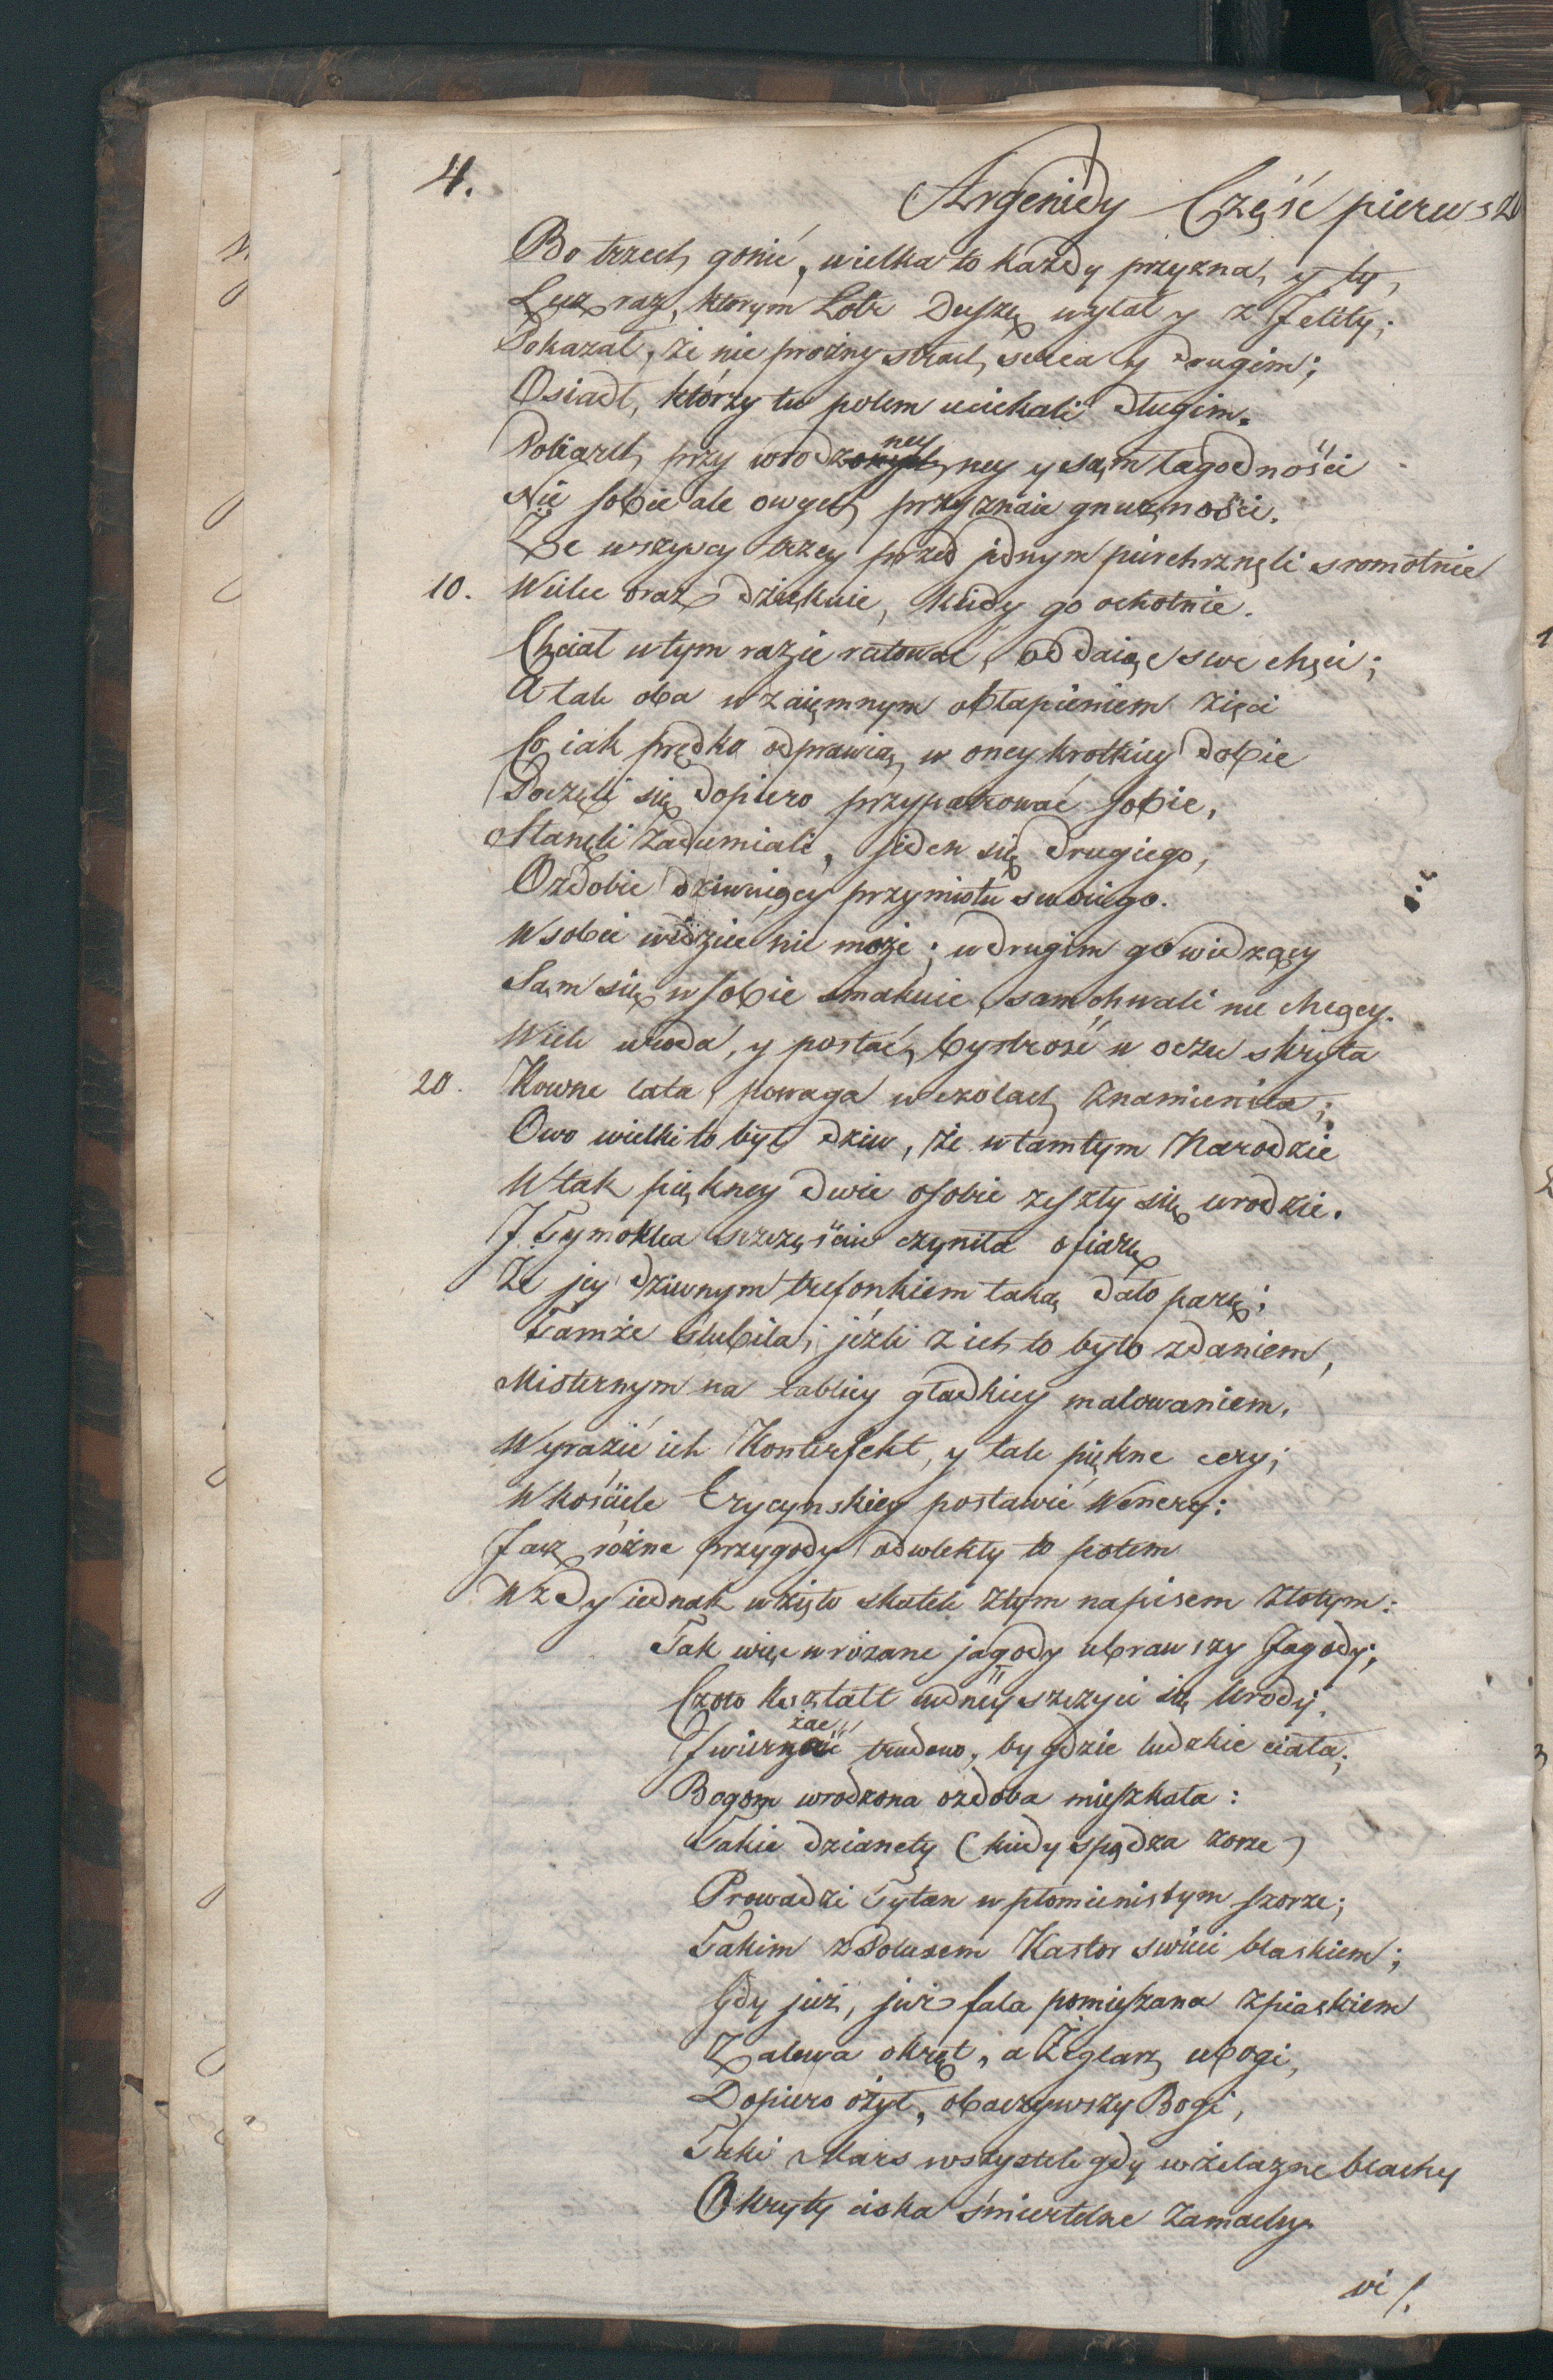 4.
Argenidy Część pierwsza
Bo trzech gonić, wielka to każdy przyzna, y ty,
Lecz raz, ktorym Łotr Duszę wylał y z Jelity;
Pokazał, że nie prożny strach serca y drugim;
Osiadł, którzy tu polem uciekali długim.
Poliarch przy wrodzoney ney y sam łagodnośći
Nie sobie ale owych przyznaie gnuznośći.
Że wszyscy trzey przed jednym pierchrznęli sromotnie
10. Wielce oraz dziękuie, kiedy go ochotnie.
Chciał wtym razie ratować, oddaiąc swe chęci;
A tak oba wzaięmnym obłapieniem zięci
Co iak prędko odprawią, w oney krotkiey dobie
Poczęli się dopiero przypatrować sobie,
Stanęli zadumiali, jeden się drugiego,
Ozdobie dziwuiący przymiotu swoiego.
Wsobie widzieć nie może; w drugim go widzący
Sam się w sobie smakuie, sam chwali nie chcący.
Wiek uroda, y postać, bystrość w oczu skryta
20. Rowne lata, powaga w czołach znamienita;
Owo wielki to był dziw, że w tamtym Narodzie
W tak piękney dwie osobie zeszły się urodzie.
J Tymoklea szczęśćiu czyniła ofiarę
Że jey dziwnym trefonkiem taką dało parę;
Tamże slubiła, jeżli z ich to było zdaniem,
Misternym na tablicy gładkiey malowaniem,
Wyrazić ich Konterfekt, y tak piękne cery;
W kośćiele Erycynskiey postawić Wenery:
Jacz rożne przygody odwlekły to potem
Wzdy iednak wzięło skutek ztym napisem złotym:
Tak więc w rożane jagody ubrawszy Jagody;
Czoło kształt cudney szczyci się Urody.
J wierzać trudno, by gdzie ludzkie ciała;
Bogom wrodzona ozdoba mieszkała:
Takie dzianety (kiedy spędza zorze)
Prowadzi Tytan w płomienistym szorze;
Takim z Poluxem Kastor swieci blaskiem;
Gdy już, już fala pomieszana z piaskiem
Zalewa okręt, a Żeglarz ubogi,
Dopiero ożył, obaczywszy Bogi,
Taki Mars wszystek gdy w żelazne blachy
Okryty ciska śmiertelne zamachy.